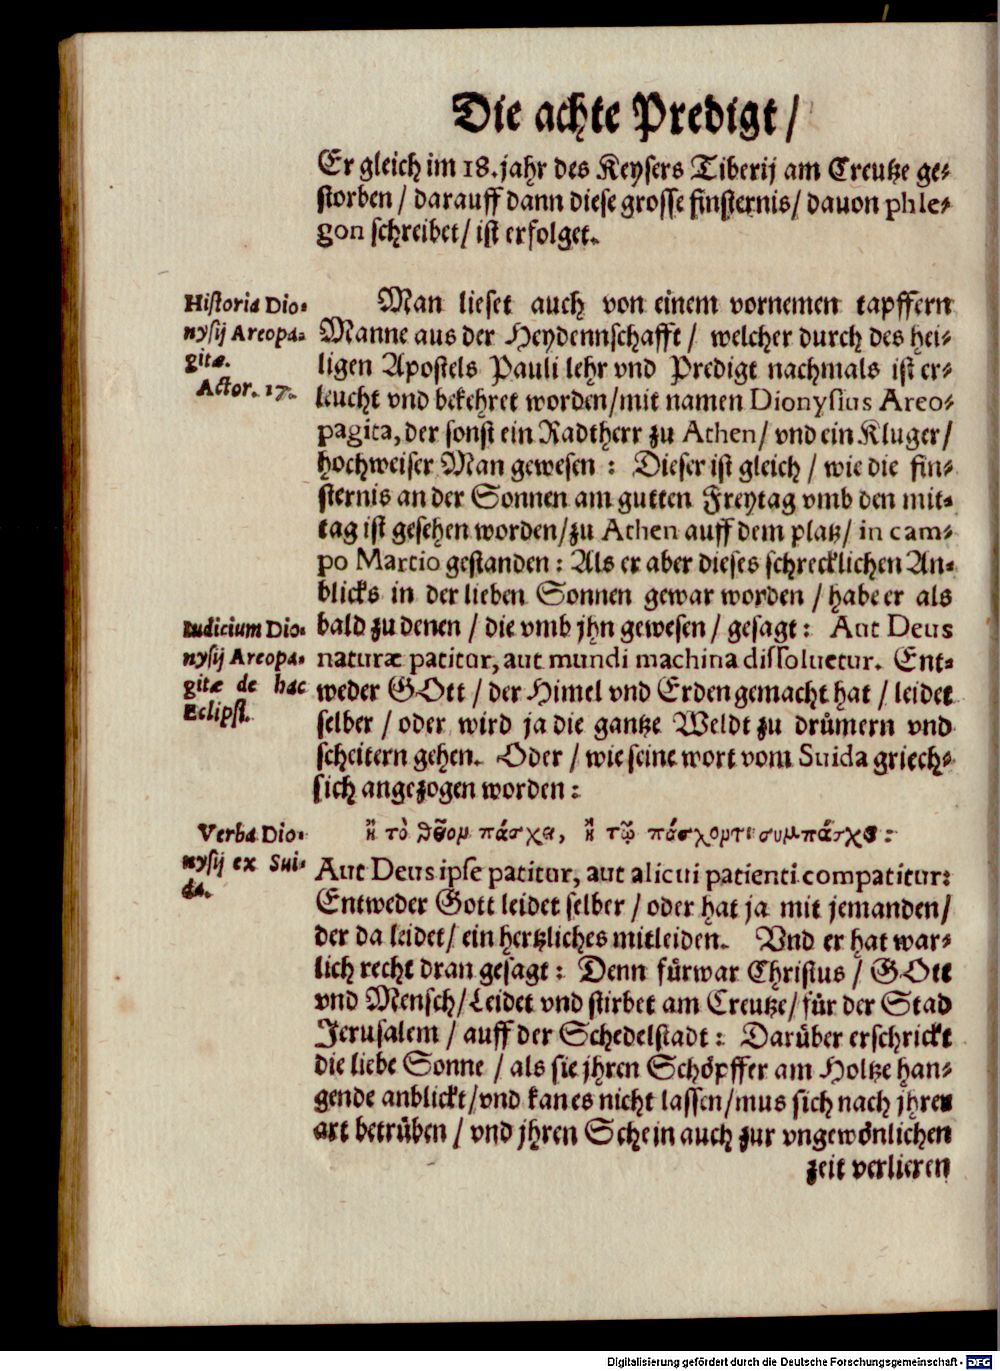 Die achte Predigt /
Er gleich im 18. jahr des Keysers Tiberij am Creutze ge-
storben / darauff dann diese grosse finsternis / dauon phle-
gon schreibet / ist erfolget.
Historia Dio-
nysij Areopa-
gitæ.
Actor. 17.
Man lieset auch von einem vornemen tapffern
Manne aus der Heydennschafft / welcher durch des hei-
ligen Apostels Pauli lehr vnd Predigt nachmals ist er-
leucht vnd bekehret worden / mit namen Dionysius Areo-
pagita, der sonst ein Radtherr zu Athen / vnd ein Kluger /
hochweiser Man gewesen : Dieser ist gleich / wie die fin-
sternis an der Sonnen am gutten Freytag vmb den mit-
tag ist gesehen worden / zu Athen auff dem platz / in cam-
po Martio gestanden : Als er aber dieses schrecklichen An-
blicks in der lieben Sonnen gewar worden / habe er als
Iudicium Dio-
nysij Areopa-
gitæ de hac
Eclipsi.
bald zu denen / die vmb jhn gewesen / gesagt : Aut Deus
naturæ patitur, aut mundi machina dissoluetur. Ent-
weder GOtt / der Himel vnd Erden gemacht hat / leidet
selber / oder wird ja die gantze Weldt zu drůmern vnd
scheitern gehen. Oder / wie seine wort vom Suida griech-
sich angezogen worden :
Verba Dio-
nysij ex Sui-
da.
ἢ τὸ θεῖομ πάσχει, ἢ τῷ πάσχομτι συμπάσχει :
Aut Deus ipse patitur, aut alicui patienti compatitur:
Entweder Gott leidet selber / oder hat ja mit jemanden /
der da leidet / ein hertzliches mitleiden. Vnd er hat war-
lich recht dran gesagt : Denn fůrwar Christus / GOtt
vnd Mensch / Leidet vnd stirbet am Creutze / fůr der Stad
Jerusalem / auff der Schedelstadt : Darůber erschrickt
die liebe Sonne / als sie jhren Schöpffer am Holtze han-
gende anblickt / vnd kan es nicht lassen / mus sich nach jhrer
art betrůben / vnd jhren Schein auch zur vngewönlichen
zeit verlieren
Digitalisierung gefördert durch die Deutsche Forschungsgemeinschaft - DFG